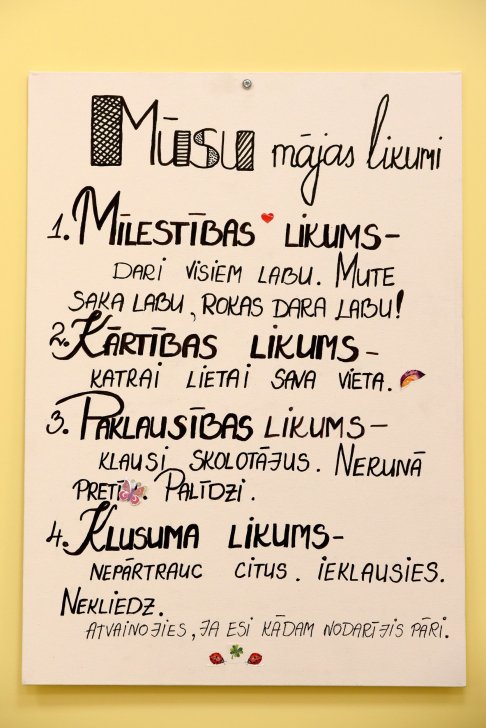 Mūsu mājas likumi
1. MĪLESTĪBAS LIKUMS-
DARI VISIEM LABU. MUTE
SAKA LABU, ROKAS DARA LABU!
2. KĀRTĪBAS LIKUMS-
KATRAI LIETAI SAVA VIETA.
3. PAKLAUSĪBAS LIKUMS-
KLAUSI SKOLOTĀJUS. NERUNĀ
PRETĪ. PALĪDZI.
4. KLUSUMA LIKUMS-
NEPĀRTRAUC CITUS. IEKLAUSIES.
NEKLIEDZ.
ATVAINOJIES, JA ESI KĀDAM NODARĪJIS PĀRI.